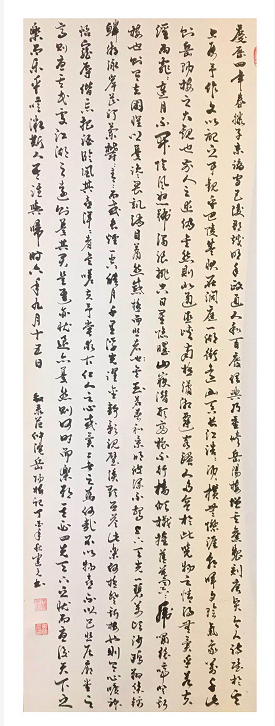 慶曆四年春滕子京謫守巴陵郡越明年政通人和百廢俱興乃重修岳陽樓增其舊制刻唐賢今人詩賦於其
上屬予作文以記之予觀夫巴陵勝狀在洞庭一湖銜遠山吞長江浩浩湯湯橫無際涯朝暉夕陰氣象萬千此
則岳陽樓之大觀也前人之述備矣然則北通巫峽南極瀟湘遷客騷人多會於此覽物之情得無異乎若夫
淫雨霏霏連月不開陰風怒號濁浪排空日星隱曜山嶽潛形商旅不行檣傾楫摧薄暮冥冥虎嘯猿啼登斯
樓也則有去國懷鄉憂讒畏譏滿目蕭然感極而悲者矣至若春和景明波瀾不驚上下天光一碧萬頃沙鷗翔集錦
鱗游泳岸芷汀蘭郁郁青青而或長煙一空皓月千里浮光躍金靜影沉璧漁歌互答此樂何極登斯樓也則有心曠神
怡寵辱偕忘把酒臨風其喜洋洋者矣嗟夫予嘗求古仁人之心或異二者之為何哉不以物喜不以己悲居廟堂之
高則憂其民處江湖之遠則憂其君是進亦憂退亦憂然則何時而樂耶其必曰先天下之憂而憂後天下之
樂而樂乎噫微斯人吾誰與歸時六年九月十五日
范仲淹岳陽樓記丁酉年秋